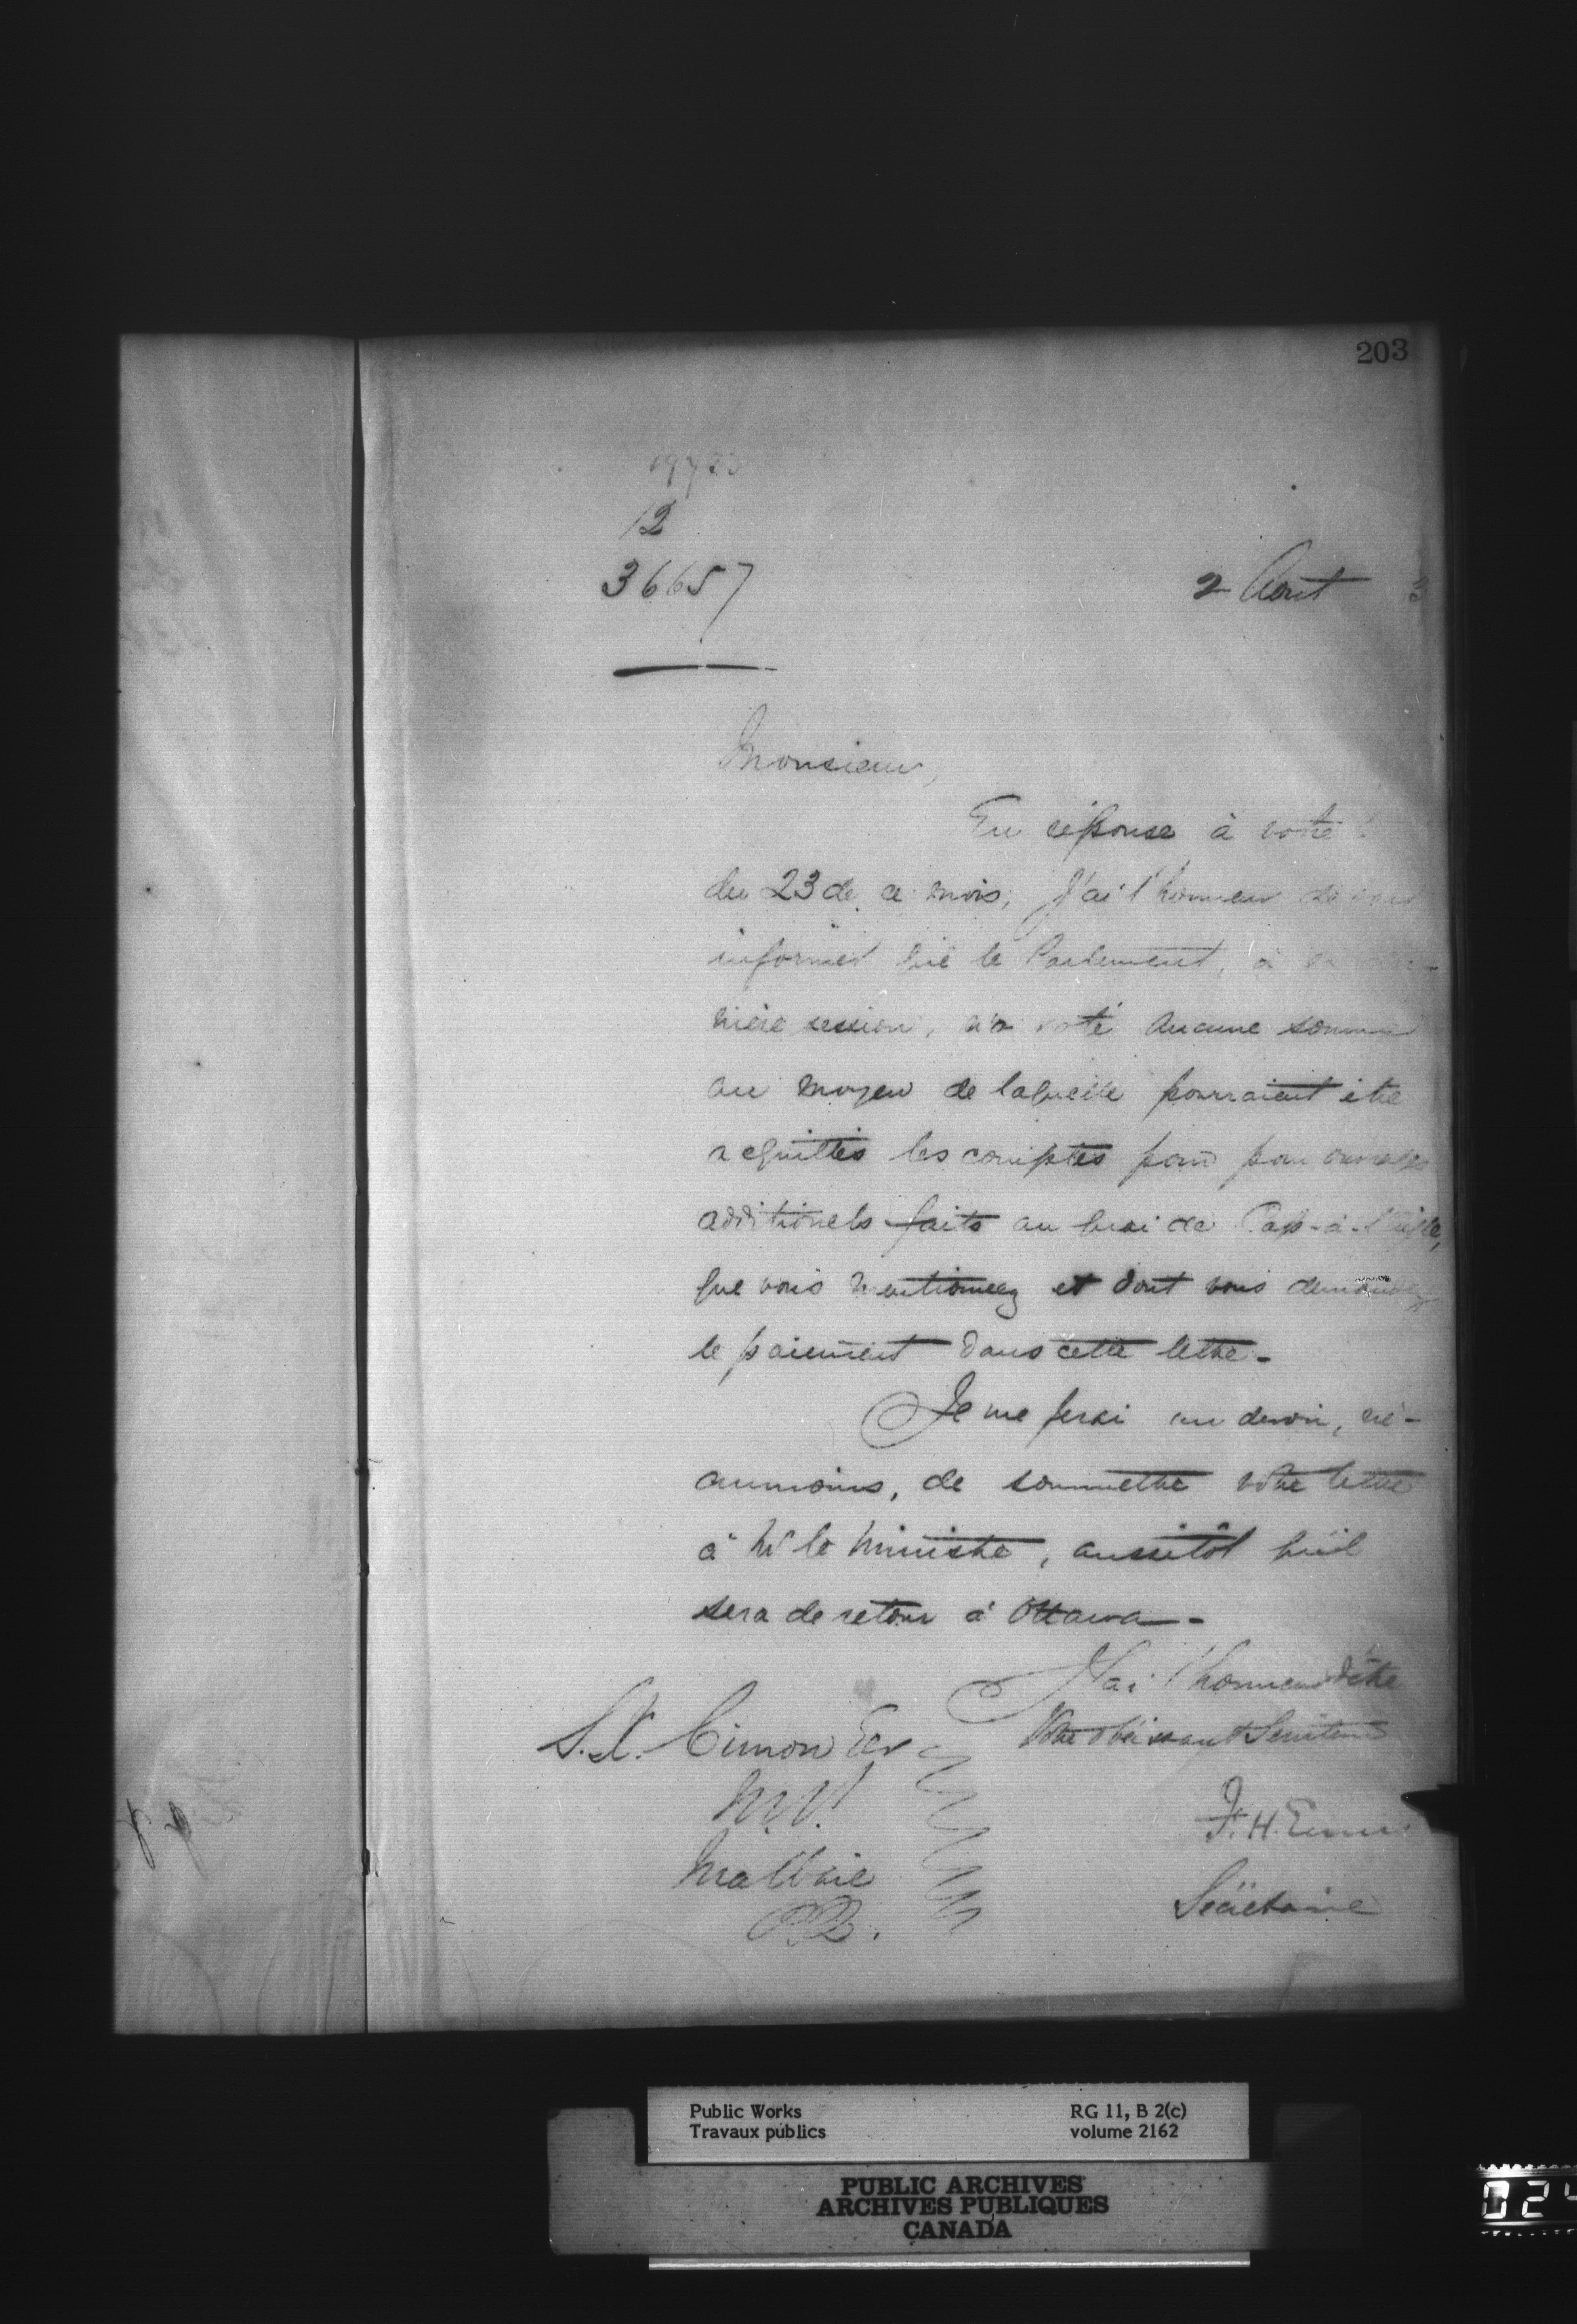 203
12
36657
2 Août 3
Monsieur,
En réponse à votre
du 23 de ce mois, J'ai l'honneur de vous
informer que le Parlement, à sa der-
nière session, n'a voté aucune somme
au moyen de laquelle pourraient être
acquittés les comptes pour ouvrages
additionels faits au quai de Cap-à-l'aigle,
que vous mentionnez et dont vous demandez
le paiement dans cette lettre -
Je me ferai un devoir, né-
anmoins, de soumettre votre lettre
à Mr le Ministre, aussitôt qu'il
sera de retour à Ottawa -
J'ai l'honneur d'être
Votre obéissant Serviteur
S.X. Cimon Ecr
M.P.
Malbaie
P.Q.
F. H. Ennis
Secrétaire
Public Works
Travaux publics
RG 11, B 2(c)
volume 2162
PUBLIC ARCHIVES
ARCHIVES PUBLIQUES
CANADA
024